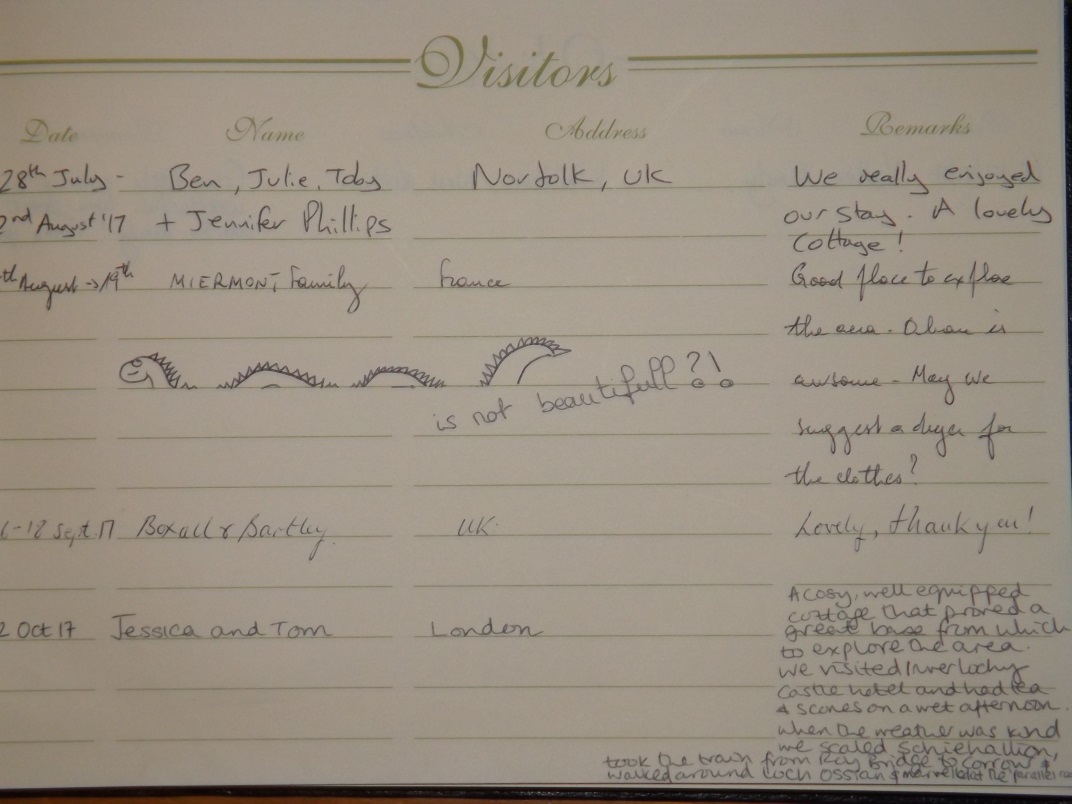 Visitors
Date Name Address Remarks
28th July - Ben, Julie, Toby Norfolk, UK We really enjoyed
2nd August '17 + Jennifer Phillips our stay. A lovely
Cottage!
th August -> 19th MIERMONT Family France Good place to explore
the area. Oban is
awsome. May we
is not beautifull ?!
suggest a dryer for
the clothes?
6-12 Sept 17 Boxall & Bartley UK. Lovely, thank you!
A cosy, well equipped
cottage that proved a
2 Oct 17 Jessica and Tom London great base from which
to explore the area.
We visited Inverlochy
Castle hotel and had tea
& scones on a wet afternoon.
When the weather was kind
we scaled Schiehallion,
took the train from Roy Bridge to Corrour &
walked around Loch Ossian & the parallel